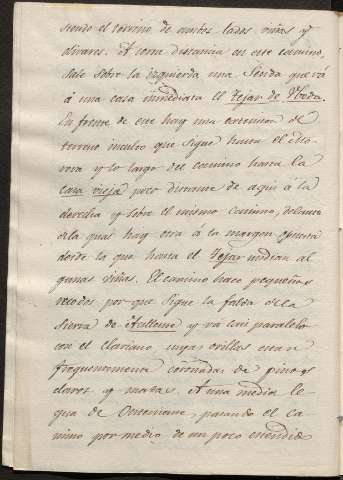 siendo el terreno de ambos lados viñas y
olivares. A corta distancia en este camino,
sale sobre la izquierda una Senda que vá
á una casa inmediata el Tejar de
En frente de ese hay una extension de
terreno inculto que sigue hasta el
y lo largo del camino hasta la
casa vieja poco distante de aquí á la
derecha y sobre el mismo camino, delante
de la qual hay otra á la margen opuesta
desde la que hasta el Tejar median al
gunas viñas. El camino hace pequeños
recodos por que sigue la falda de la
Sierra de y vá casi paralelo
con el Clariano cuyas orillas estan
frequentemente coronadas de pinos
claros y matas. A una media le
gua de Onteniente, pasando el ca
mino por medio de un poco